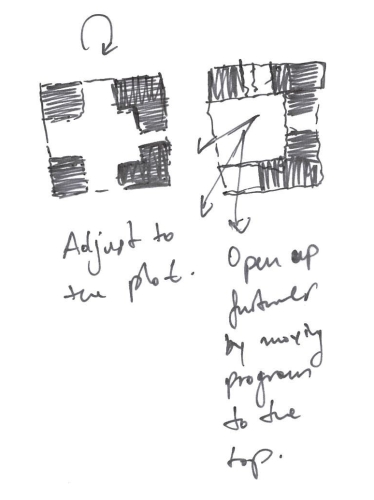 Adjust to
the plot.
Open up
further
by moving
program
to the
top.